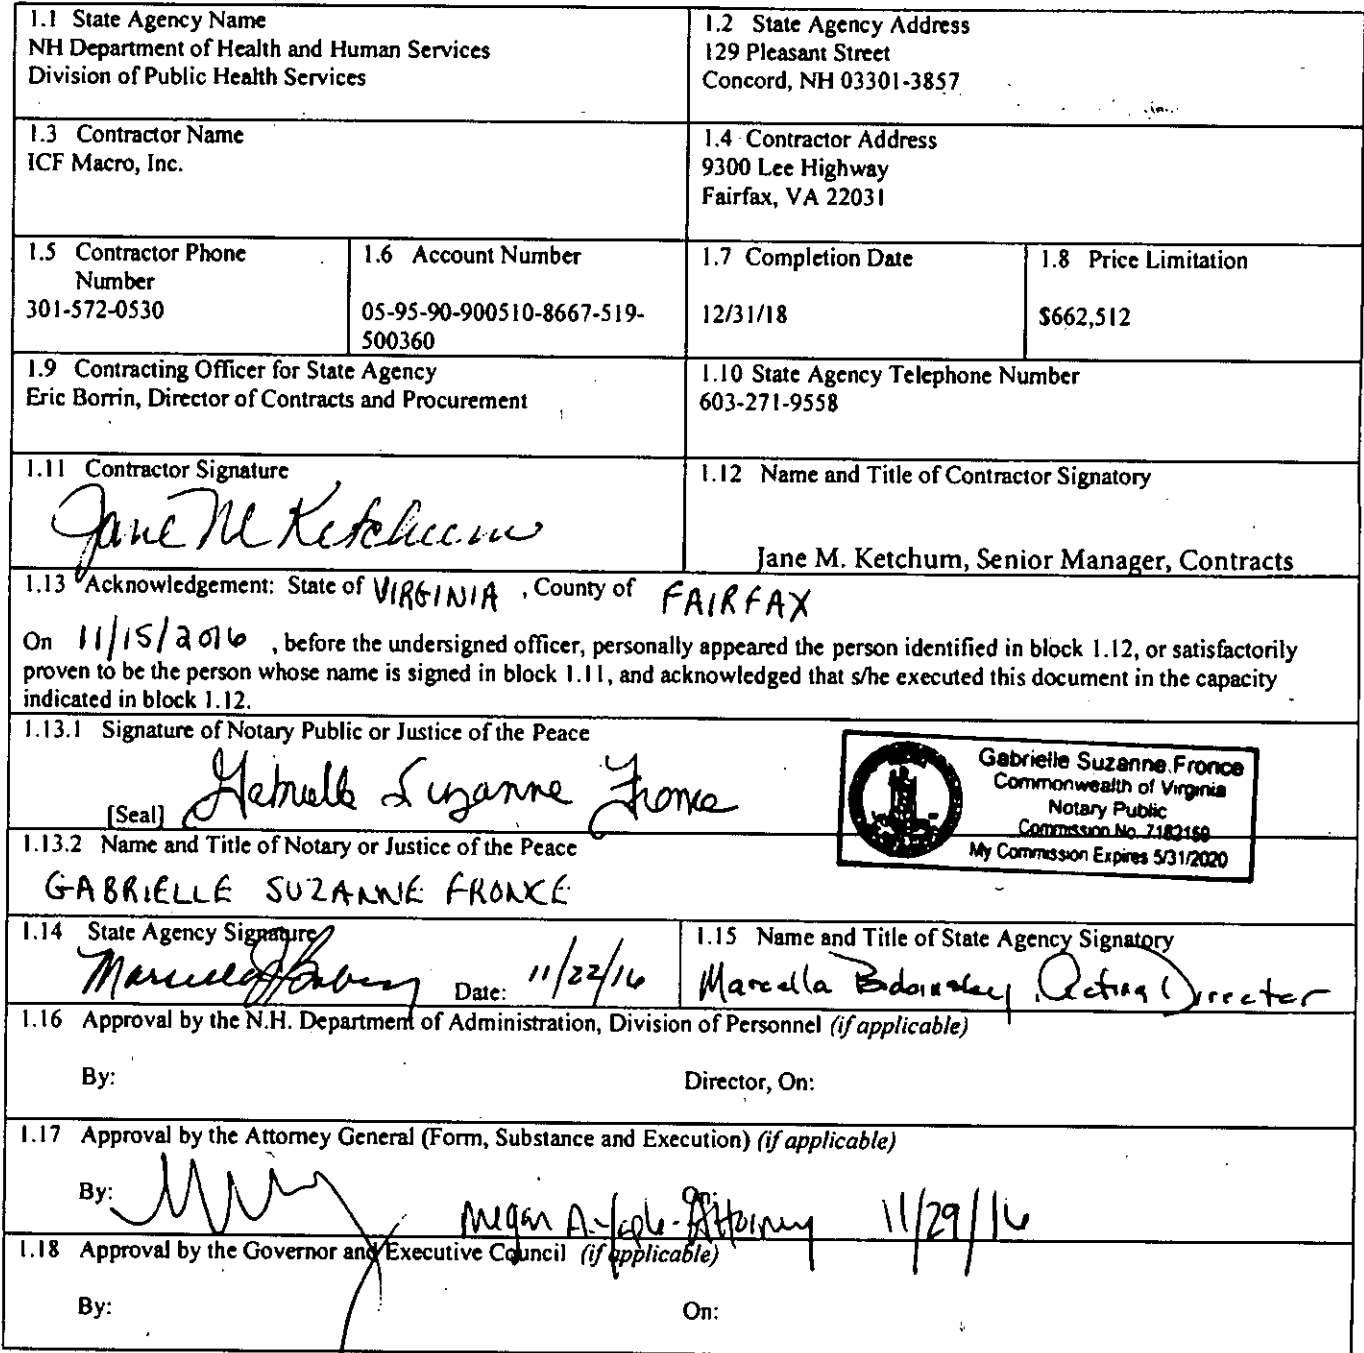 1.1 State Agency Name
NH Department of Health and Human Services
Division of Public Health Services
1.2 State Agency Address
129 Pleasant Street
Concord, NH 03301-3857
1.3 Contractor Name
ICF Macro, Inc.
1.4 Contractor Address
9300 Lee Highway
Fairfax, VA 22031
1.5 Contractor Phone
Number
301-572-0530
1.6 Account Number
05-95-90-900510-8667-519-
500360
1.7 Completion Date
12/31/18
1.8 Price Limitation
$662,512
1.9 Contracting Officer for State Agency
Eric Borrin, Director of Contracts and Procurement
1.10 State Agency Telephone Number
603-271-9558
1.11 Contractor Signature
Jane M Ketchum
1.12 Name and Title of Contractor Signatory
Jane M. Ketchum, Senior Manager, Contracts
1.13 Acknowledgement: State of VIRGINIA , County of FAIRFAX
On 11/15/2016 , before the undersigned officer, personally appeared the person identified in block 1.12, or satisfactorily
proven to be the person whose name is signed in block 1.11, and acknowledged that s/he executed this document in the capacity
indicated in block 1.12.
1.13.1 Signature of Notary Public or Justice of the Peace
[Seal] Gabrielle Suzanne Fronce
Gabrielle Suzanne Fronce
Commonwealth of Virginia
Notary Public
Commission No. 7182159
My Commission Expires 5/31/2020
1.13.2 Name and Title of Notary or Justice of the Peace
GABRIELLE SUZANNE FRONCE
1.14 State Agency Signature
Date: 11/22/16
1.15 Name and Title of State Agency Signatory
Marcella Acting Director
1.16 Approval by the N.H. Department of Administration, Division of Personnel (if applicable)
By:
Director, On:
1.17 Approval by the Attorney General (Form, Substance and Execution) (if applicable)
By:
On:
Megan A. Yaple - Attorney 11/29/16
1.18 Approval by the Governor and Executive Council (if applicable)
By:
On: